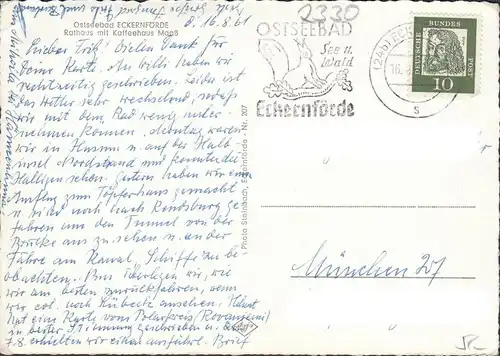 2330
Ostseebad ECKERNFÖRDE
Rathaus mit Kaffeehaus Maaß
d. 16.8.61
Lieber Erich! Vielen Dank für
Deine Karte. An Willi haben wir
rechtzeitig geschrieben. Leider ist
das Wetter sehr wechselnd, sodaß
wir mit dem Rad wenig unter-
nehmen können. Montag waren
wir in Husum u. auf der Halb-
insel Nordstrand und konnten die
Halligen sehen. Gestern haben wir einen
Ausflug zum Töpferhaus gemacht
u. sind noch nach Rendsburg ge-
fahren um den Tunnel von der
Brücke aus zu sehen u. an der
Fähre am Kanal, Schiffe zu be-
obachten. Nun überlegen wir, wie
wir am besten zurückfahren, wenn
wir evtl. noch Lübeck ansehen. Helmut
hat eine Karte vom Polarkreis (Rovaniemi)
in bester Stimmung geschrieben u.
7.8. erhielten wir einen ausführl. Brief
Photo Steinbach, Eckernförde - Nr. 207
OSTSEEBAD
See u.
Wald
Eckernförde
(24b) EC
16.
S
DEUTSCHE BUNDES POST
10
München 27